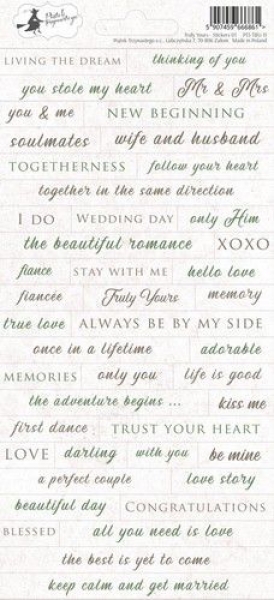 Piątek Trzynastego
5 907459 666861
Truly Yours - Stickers 01
Made in Poland
LIVING THE DREAM thinking of you
you stole my heart Mr & Mrs
you & me NEW BEGINNING
soulmates wife and husband
TOGETHERNESS follow your heart
together in the same direction
I DO WEDDING DAY only Him
the beautiful romance XOXO
fiance STAY WITH ME hello love
fiancée Truly Yours memory
true love ALWAYS BE BY MY SIDE
once in a lifetime adorable
MEMORIES only you life is good
the adventure begins ... kiss me
first dance TRUST YOUR HEART
LOVE darling with you be mine
a perfect couple love story
beautiful day CONGRATULATIONS
BLESSED all you need is love
the best is yet to come
keep calm and get married